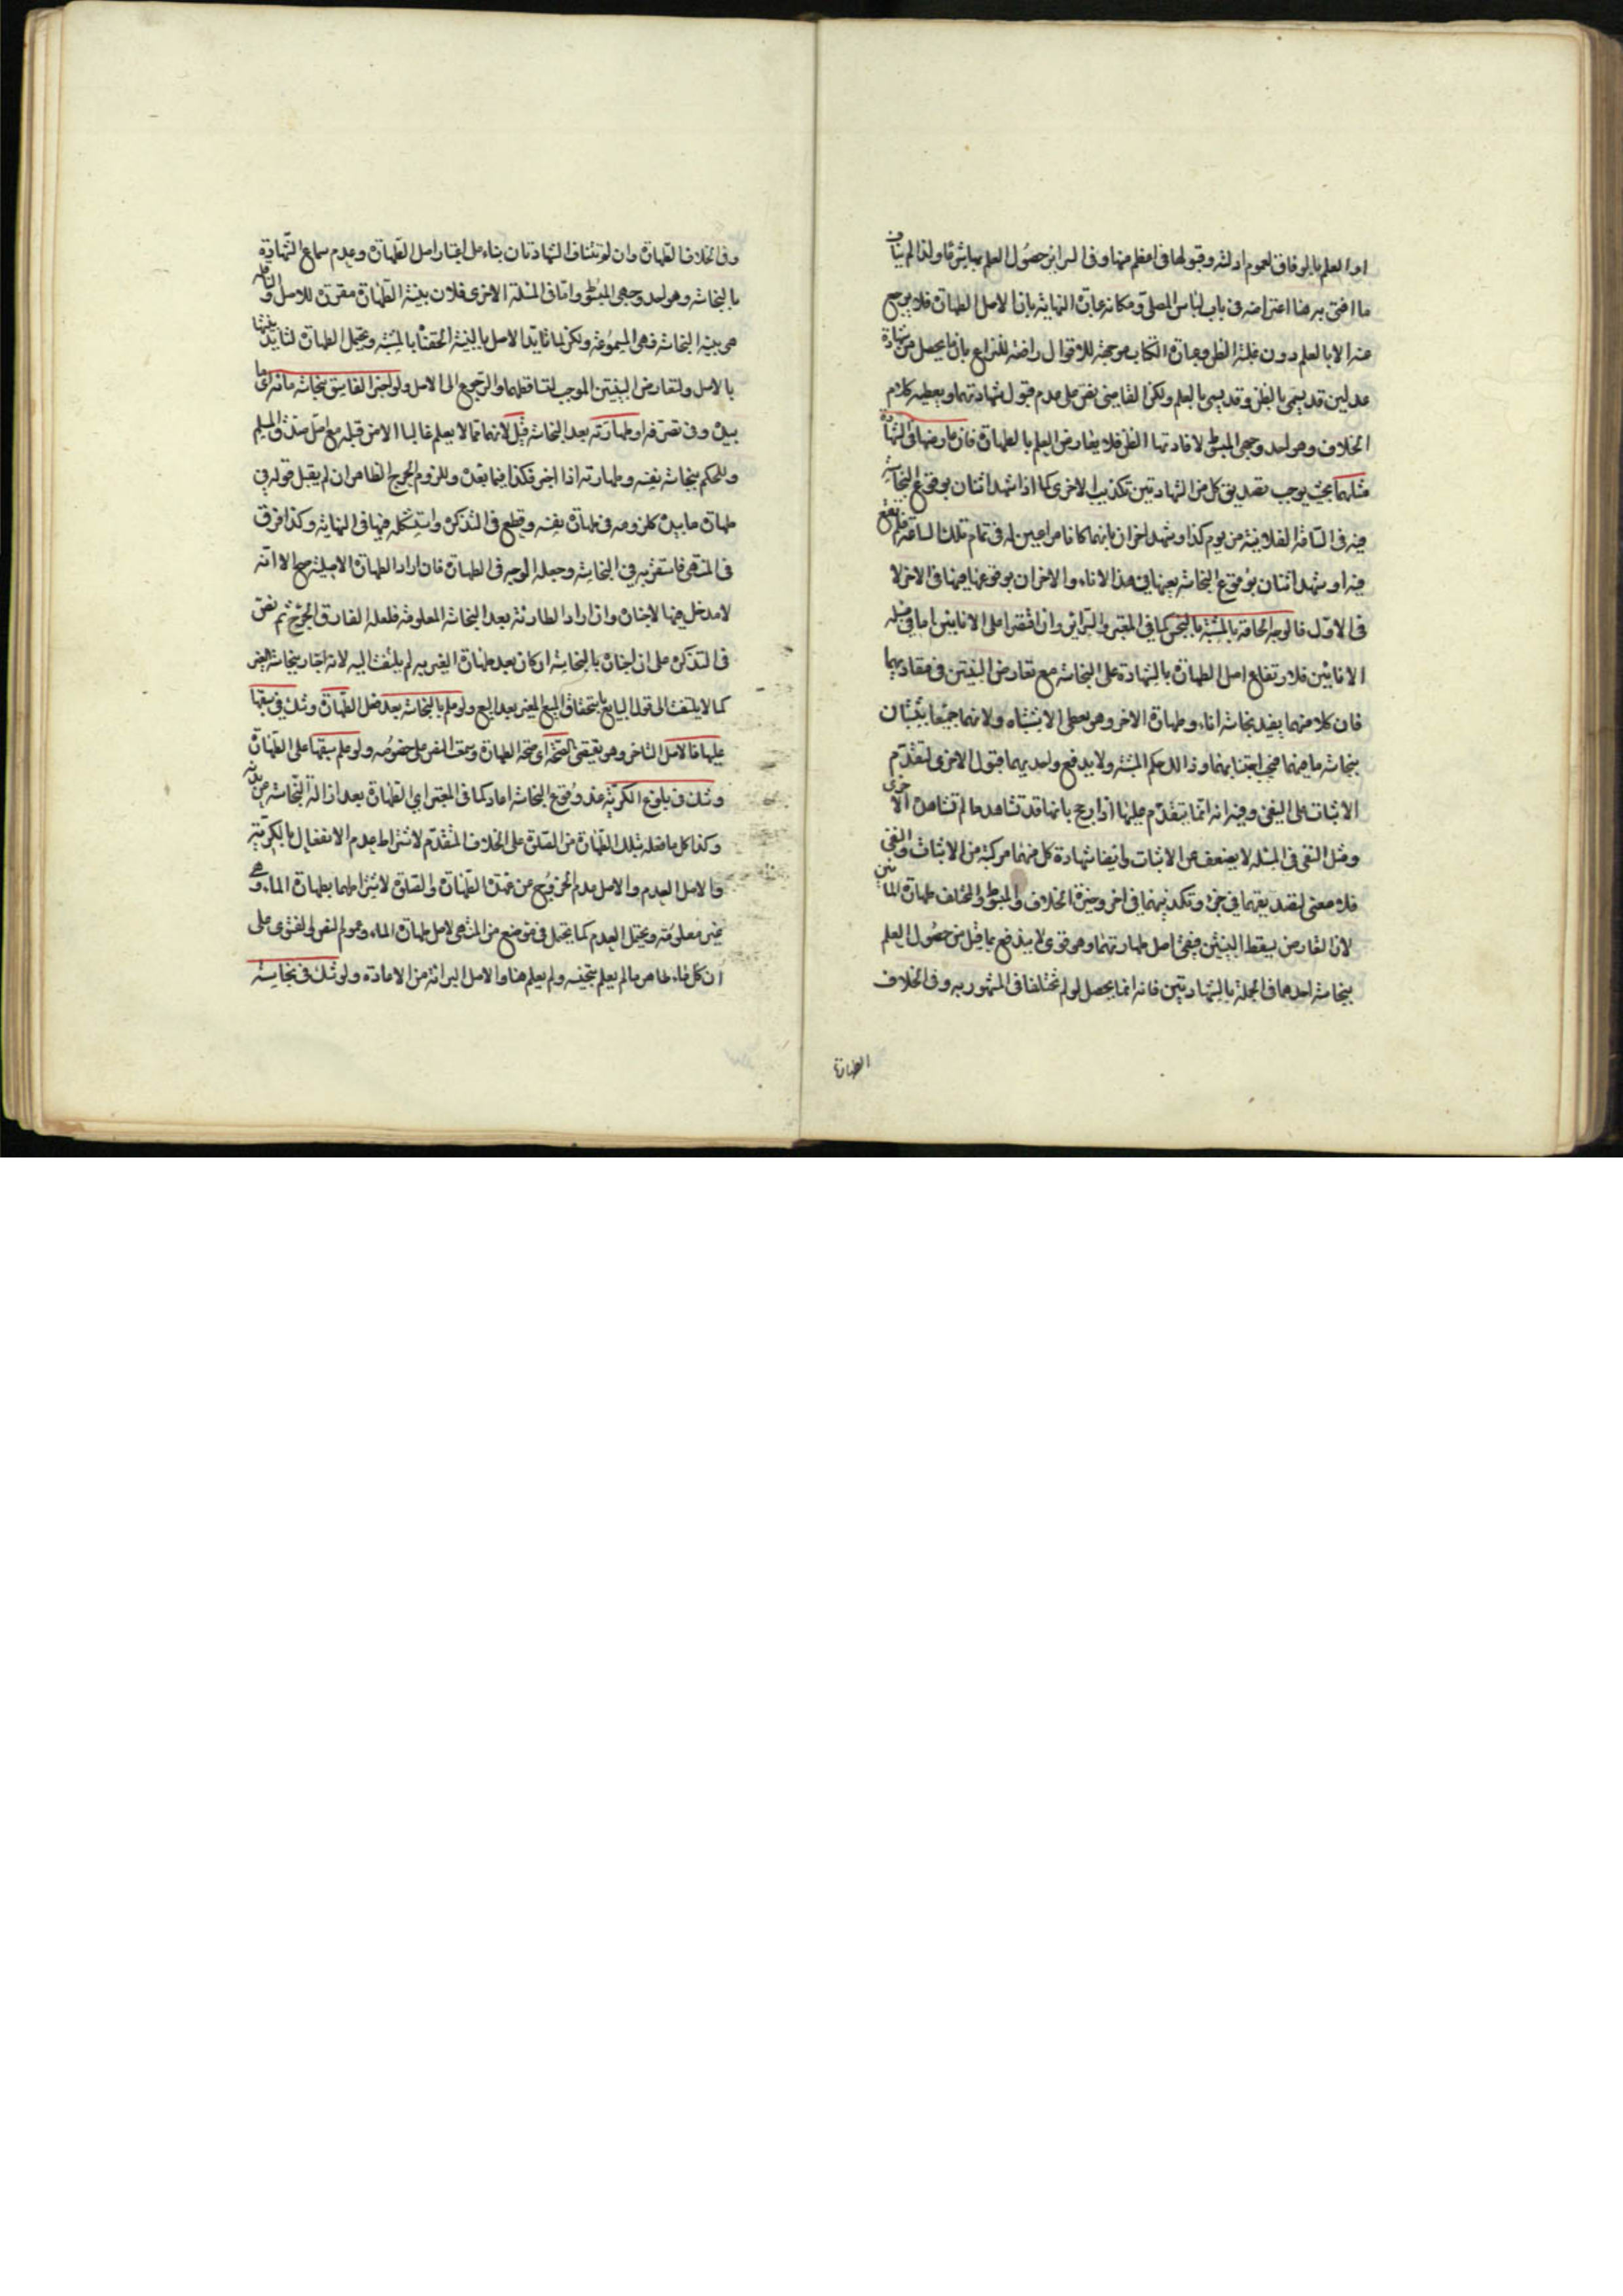 او العلم بالوفاق لعموم ادلته وقبولها فى اعظم منها وفى السرائر حصول العلم بهما شرعا ولذا لم يناف
ما افتى به هنا اعتراضه فى باب لباس المصلى ومكانه عبارة النهاية بان الاصل الطهارة فلا يرجع
عنه الا بالعلم دون غلبة الظن وعبارة الكتاب موجهة للاقوال رافعة للنزاع بان ما يحصل من شهادة
عدلين قد يسمى بالظن وقد يسمى بالعلم ولكن القاضى نص على عدم قبول شهادتهما ويعطيه كلام
الخلاف وهو احد وجهى المبسوط لافادتها الظن فلا يعارض العلم بالطهارة فان عارضها فى الشهادة
مثلهما بحيث يوجب تصديق كل من الشهادتين تكذيب الاخرى كما اذا شهد اثنان بوقوع النجاسة
فيه فى الساعة الفلانية من يوم كذا وشهد اخران بانهما كانا مراعيين له فى تمام تلك الساعة فلم تقع
فيه او شهد اثنان بوقوع النجاسة بعينها فى هذا الاناء والاخران بوقوعها بعينها فى الاخر لا
فى الاول فالوجه الحاقه بالمشتبه بالنجس كما فى المعتبر والسرائر وان اقتصرا على الانائين اما فى مثله
الانائين فلارتفاع اصل الطهارة بالشهادة على النجاسة مع تعارض البينتين فى مفاديهما
فان كلا منهما يفيد نجاسة اناء وطهارة الاخر وهو معطى الاشتباه ولانهما جميعا يثبتان
نجاسة ما فيهما فيجب اجتنابهما وذا لك حكم المشتبه ولا يدفع واحد بهما قبول الاخرى لتقدم
الاثبات على النفى وفيه انه انما يتقدم عليها اذا رجح بانها قد تشاهد ما لم تشاهد الاخرى
ومثل النفى فى المسئلة لا يضعف عن الاثبات وايضا شهادة كل منهما مركبة من الاثبات والنفى
فلا معنى لتصديقهما فى جزء وتكذيبهما فى اخر وخيرة الخلاف والمبسوط والمختلف طهارة المائين
لان التعارض يسقط البينتين فبقى اصل طهارتهما وهو قوى لا يندفع بما قيل من حصول العلم
بنجاسة احدهما فى الجملة بالشهادتين فانه انما يحصل لو لم تختلفا فى المشهور به وفى الخلاف
الطهارة
وفى الخلاف الطهارة وان لم تتنافى الشهادتان بناء على اعتبار اصل الطهارة وعدم سماع الشهادة
بالنجاسة وهو احد وجهى المبسوط واما فى المسئلة الاخرى فلان بينة الطهارة مقررة للاصل والناقلة
هى بينة النجاسة فهى المسموعة ولكن لما تايد الاصل بالبينة الحقناه بالمشتبه ويحتمل الطهارة لتايد بينتها
بالاصل ولتعارض البينتين الموجب لتساقطهما والرجوع الى الاصل ولو اخبر الفاسق بنجاسة مائه اى ما
بيده وفى تصرفه او طهارته بعد النجاسة قبل لانهما مما لا يعلم غالبا الا من قبله مع اصل صدق المسلم
وللحكم بنجاسة نفسه وطهارته اذا اخبر فكذا فيما بيده وللزوم الحرج الظاهر ان لم يقبل قوله فى
طهارة ما بيده كلزومه فى طهارة نفسه وقطع فى التذكرة واستشكله فيها فى النهاية وكذا فرق
فى المنتهى فاستقربه فى النجاسة وجعله الوجه فى الطهارة فان اراد الطهارة الاصلية صح الا انه
لا مدخل فيها لاخباره وان اراد الطارئة بعد النجاسة المعلومة فلعله الفارق الحرج ثم نص
فى التذكرة على ان اخباره بالنجاسة ان كان بعد طهارة الغير به لم يلتفت اليه لانه اخبار بنجاسة الغير
كما لا يلتفت الى قول البايع باستحقاق المبيع للغير بعد البيع ولو علم بالنجاسة بعد فعل الطهارة وشك فى سبقها
عليها فالاصل التاخر وهو يقتضى الصحة اى صحة الطهارة ومعه النص على خصوصه ولو علم سبقها على الطهارة
وشك فى بلوغ الكرية عند وقوع النجاسة اعاد كما فى المعتبر اى الطهارة بعد ازالة النجاسة عن بدنه
وكذا كل ما فعله بتلك الطهارة من الصلوة على الخلاف المتقدم لاشتراط عدم الانفعال بالكرية
والاصل العدم والاصل عدم الخروج عن عهدة الطهارة والصلوة لاشتراطهما بطهارة الماء وهى
غير معلومة ويحتمل العدم كما يحتمل فى موضع من المنتهى لاصل طهارة الماء وعموم النص والفتوى على
ان كل ماء طاهر ما لم يعلم بتنجيسه ولم يعلم هنا والاصل البرائة من الاعادة ولو شك فى نجاسته